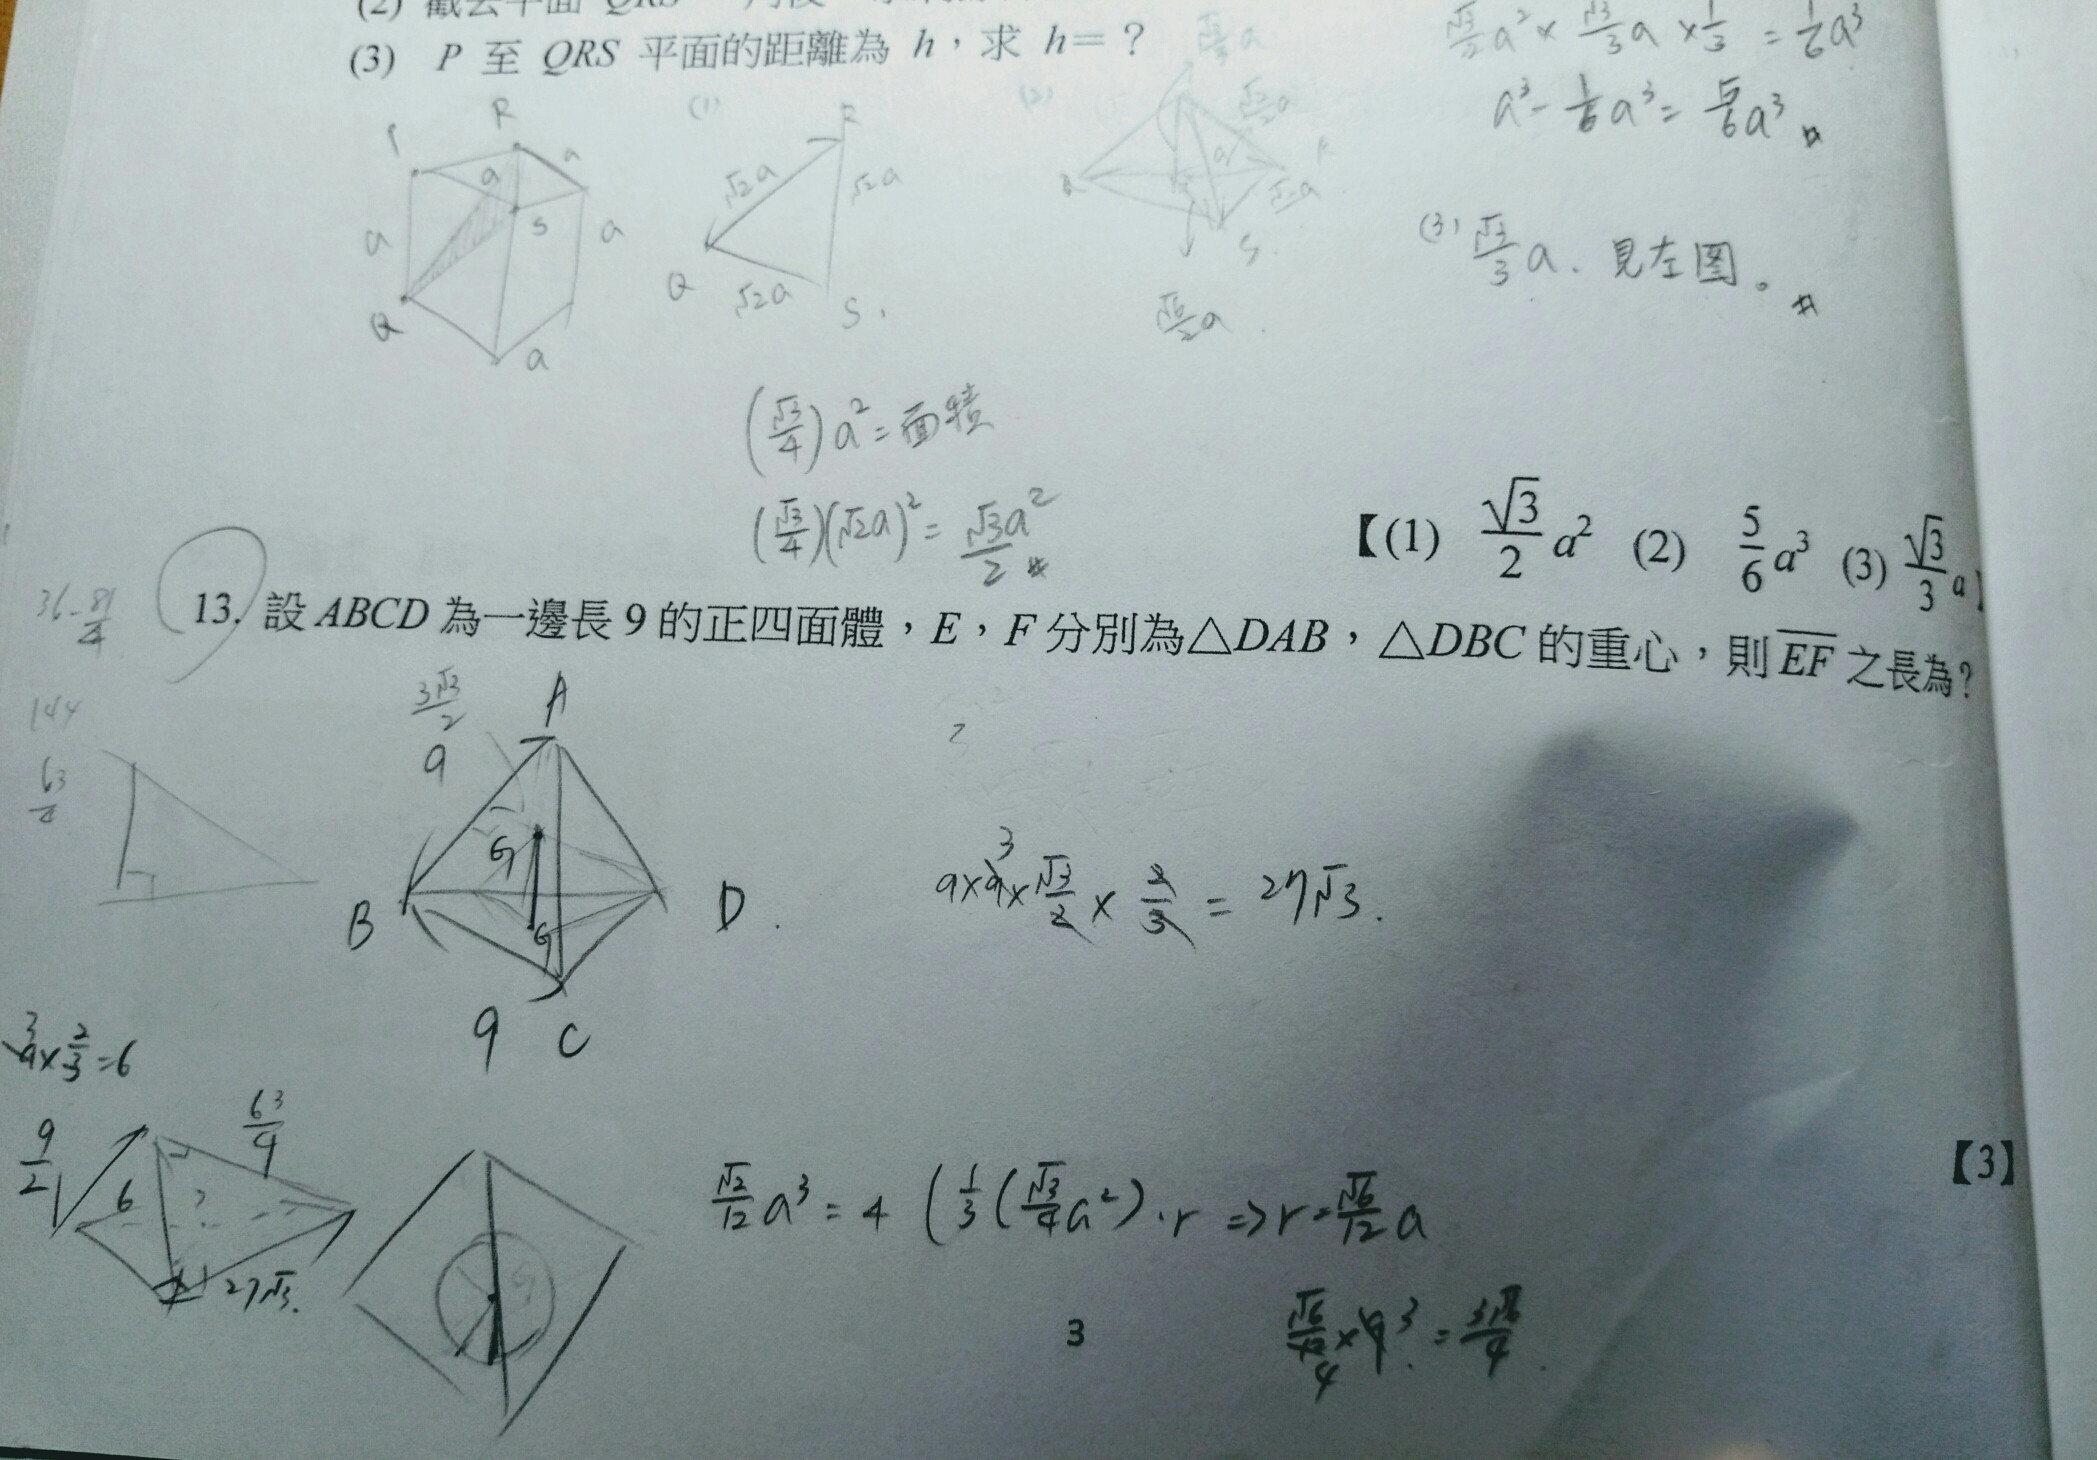 (2) 截去平面 QRS
(3) P 至 QRS 平面的距離為 h，求 h=？
√3/2 a² × √3/3 a × 1/3 = 1/6 a³
a³ - 1/6 a³ = 5/6 a³
(3) √3/3 a. 見左圖。
R
a
a
a
S
a
Q
a
(1)
R
√2a
√2a
Q
√2a
S
(2)
√2/2 a
a
R
√2a
S.
√6/2 a
(√3/4) a² = 面積
(√3/4)(√2a)² = √3a²/2
【(1) √3/2 a² (2) 5/6 a³ (3) √3/3 a】
36 - 81/4
13. 設 ABCD 為一邊長 9 的正四面體，E，F 分別為△DAB，△DBC 的重心，則 EF 之長為？
144
63/4
3√3/2
9
A
G
G
B
D.
9
C
9×9× √3/2 × 2/3 = 27√3.
3
9 × 2/3 = 6
3
9/2
6
63/4
?
27√3.
G
【3】
√2/12 a³ = 4 (1/3 (√3/4 a²) · r => r = √6/12 a
√6/12 × 9 = 3√6/4
4
3
3